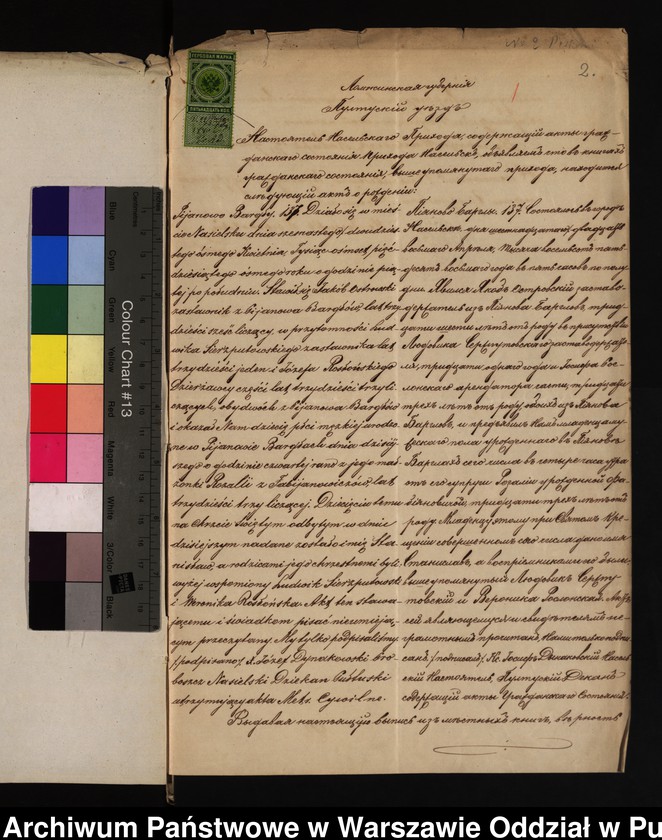 2.
ГЕРБОВАЯ МАРКА
Ломжинская губернія
Пултускій уѣздъ
Настоятель Насельскаго Прихода, содержащій акты граж-
данскаго состоянія Прихода Насельскъ, объявляетъ что въ книгахъ
гражданскаго состоянія, вышеупомянутаго прихода, находится
слѣдующій актъ о рожденіи:
Pijanowo Bargły. 157. Działo się w mieś-
cie Nasielsku dnia szesnastego/dwudzies
tego ósmego Kwietnia, Tysiąc ośmset pięć-
dziesiątego ósmego roku o godzinie pią-
tej po południu. Stawił się Jakób Ostrowski
zastawnik z Pijanowa Bargłów, lat trzy
dzieści sześć liczący, w przytomności Lud-
wika Sierzputowskiego zastawnika lat
trzydzieści jeden i Józefa Rostońskiego
Dzierżawcy części lat trzydzieści trzy li-
czących, obydwóch z Pijanowa Bargłów
i okazał Nam dziecię płci męzkiej urodzo
ne w Pijanowie Bargłach dnia dzisiej
szego o godzinie czwartej rano z jego mał
żonki Rozalii z Fabijanowiczów lat
trzydzieści trzy liczącej. Dziecięciu temu
na Chrzcie Świętym odbytym w dniu
dzisiejszym nadane zostało imię Sta-
nisław, a rodzicami jego chrzestnemi byli
wyżej wspomniony Ludwik Sierzputowski
i Weronika Rostońska. Akt ten stawa-
jącemu i świadkom pisać nieumieją-
cym przeczytany My tylko podpisaliśmy
/podpisano/ X. Józef Dynakowski Pro
boszcz Nasielski Dziekan Pułtuski
utrzymujący akta Metr. Cywilne.
Піяново Барглы. 157. Состоялось въ городѣ
Насельскѣ, дня шестнадцатаго/двадцать
восьмаго Апрѣля, Тысяча восемьсотъ пять-
десятъ восьмаго года въ пять часовъ по полу
дни. Явился Якобъ Островскій заставо-
держатель изъ Піянова Баргловъ, трид-
цати шести лѣтъ отъ роду въ присутствіи
Людовика Сержпутовскаго
тридцати одного года и Іосифа Рос-
тонскаго арендатора части, тридцати
трехъ лѣтъ отъ роду, обоихъ изъ Піянова
Баргловъ, и предъявилъ Намъ младенца му-
жескаго пола урожденнаго въ Піяновѣ
Барглахъ сего числа въ четыре часа утра
отъ его супруги Розаліи урожденной Фа-
біяновичъ тридцати трехъ лѣтъ отъ
роду. Младенцу этому при Святомъ Кре-
щеніи совершенномъ сего числа дано имя
Станиславъ, а воспріемниками его были
вышеупомянутый Людовикъ Сержпу-
товскій и Вероника Ростонская. Актъ
сей являющемуся и свидѣтелямъ не-
грамотнымъ прочитанъ, Нами только подпи
санъ /подписалъ/ Кс. Іосифъ Дынаковскій Насель
скій Настоятель, Пултускій Деканъ
содержащій акты Гражданскаго Состоянія.
Выдавая настоящую выпись изъ мѣстныхъ книгъ, въ вѣрность
Colour Chart #13
Blue
Cyan
Green
Yellow
Red
Magenta
White
3/Color
Black
Centimetres
Archiwum Państwowe w Warszawie Oddział w Pu